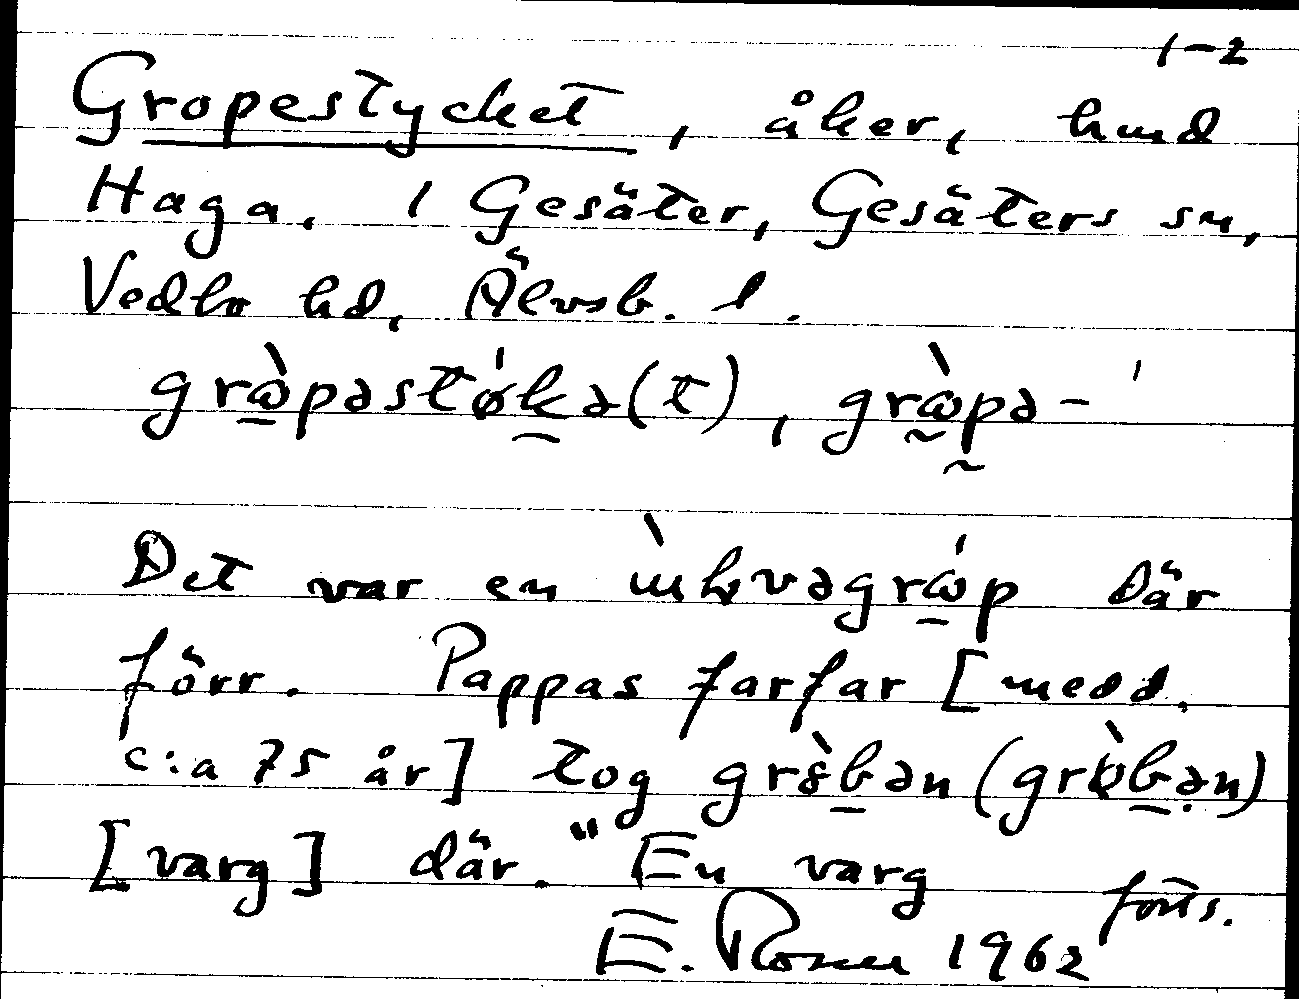 1-2
Gropestycket, åker, hmd
Haga. 1 Gesäter, Gesäters sn,
Vedbo hd, Älvsb. l.
grɷ̀pəstǿkə(t), grɷ̀pə-'
Det var en ùlvəgrɷ́p där
förr. Pappas farfar [medd.
c:a 75 år] tog gr bən (gr bən)
[varg] där." En varg
forts.
E. Rosell 1962